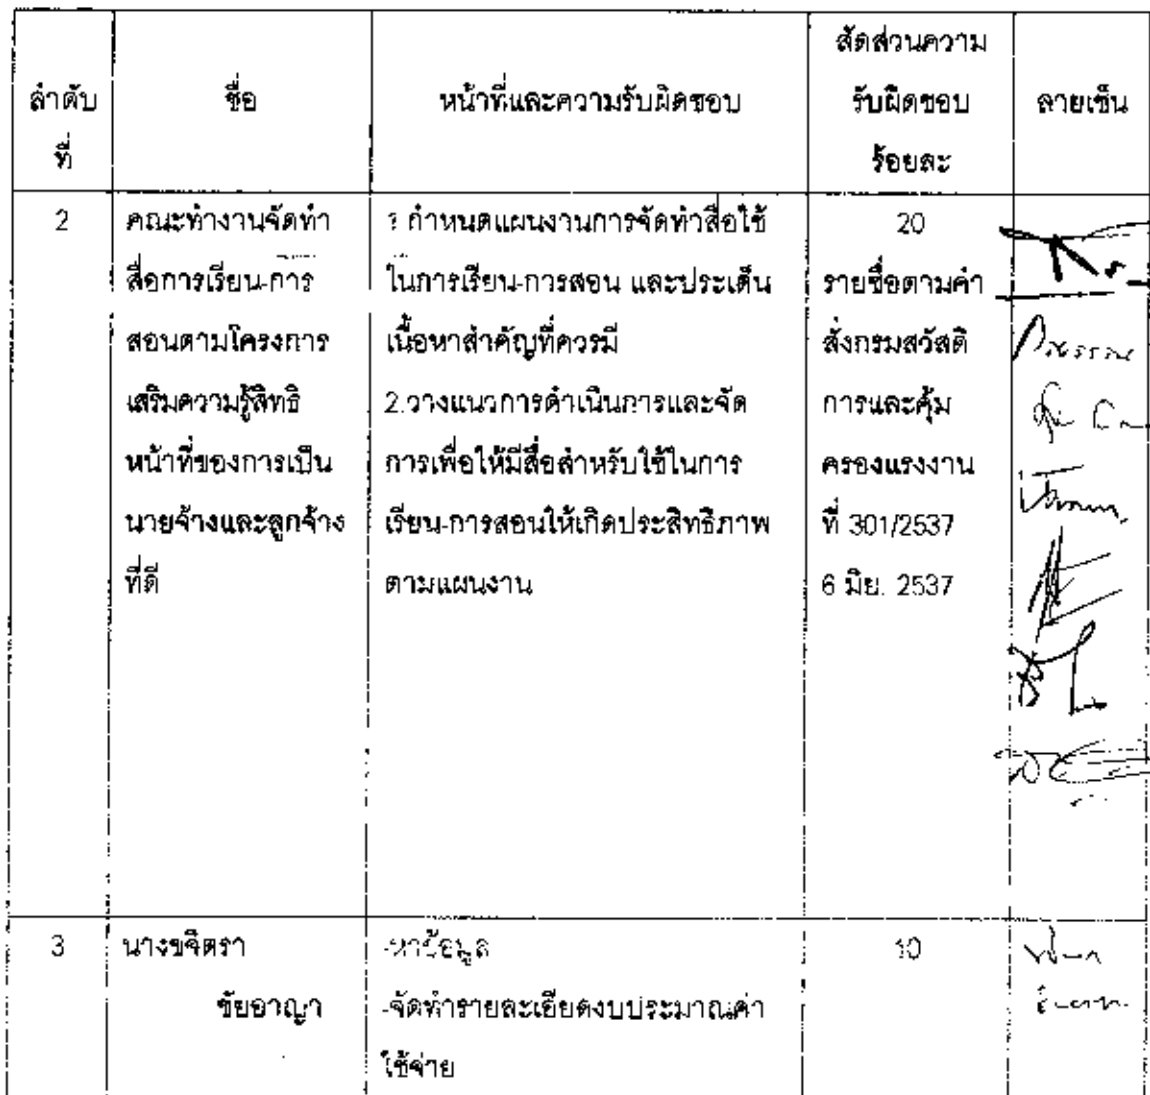 ลำดับ
ที่
ชื่อ
หน้าที่และความรับผิดชอบ
สัดส่วนความ
รับผิดชอบ
ร้อยละ
ลายเซ็น
2
คณะทำงานจัดทำ
สื่อการเรียน-การ
สอนตามโครงการ
เสริมความรู้สิทธิ
หน้าที่ของการเป็น
นายจ้างและลูกจ้าง
ที่ดี
1 กำหนดแผนงานการจัดทำสื่อใช้
ในการเรียน-การสอน และประเด็น
เนื้อหาสำคัญที่ควรมี
2.วางแนวการดำเนินการและจัด
การเพื่อให้มีสื่อสำหรับใช้ในการ
เรียน-การสอนให้เกิดประสิทธิภาพ
ตามแผนงาน
20
รายชื่อตามคำ
สั่งกรมสวัสดิ
การและคุ้ม
ครองแรงงาน
ที่ 301/2537
6 มิย. 2537
3
นางขจิตรา
ชัยอาญา
-หาข้อมูล
-จัดทำรายละเอียดงบประมาณค่า
ใช้จ่าย
10